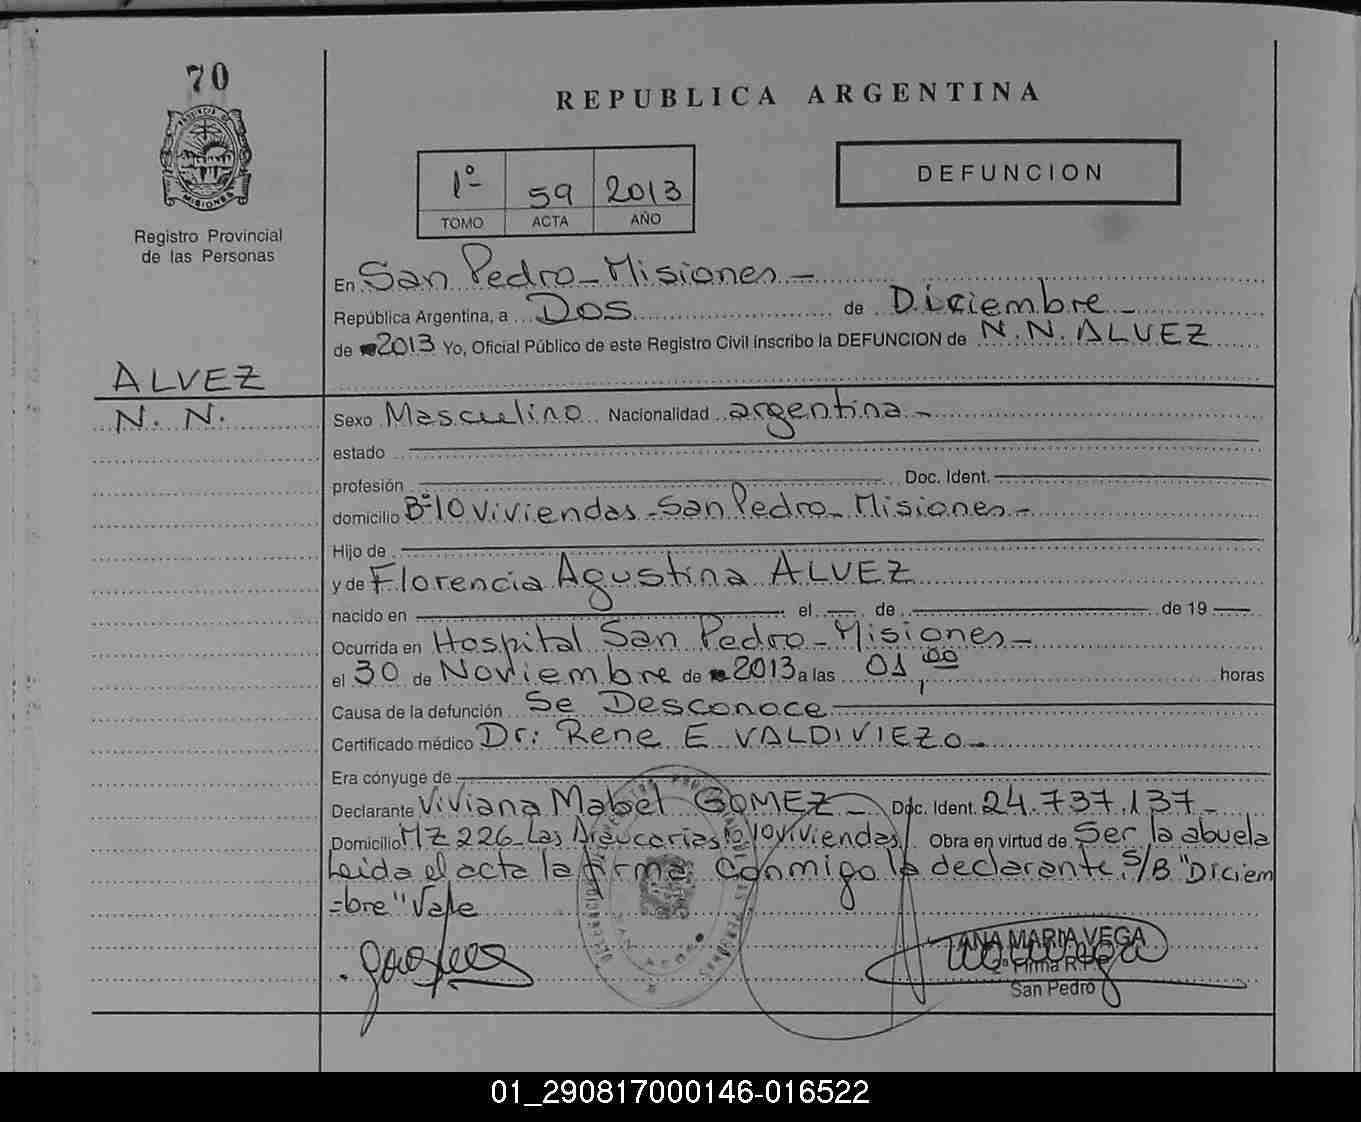 70
PROVINCIA DE
MISIONES
Registro Provincial
de las Personas
REPUBLICA ARGENTINA
1º 59 2013
TOMO ACTA AÑO
DEFUNCION
En San Pedro - Misiones -
República Argentina, a Dos de Diciembre -
de 2013 Yo, Oficial Público de este Registro Civil inscribo la DEFUNCION de N. N. ALVEZ
ALVEZ
N. N.
Sexo Masculino Nacionalidad argentina -
estado
profesión Doc. Ident.
domicilio Bº 10 Viviendas - San Pedro - Misiones -
Hijo de
y de Florencia Agustina ALVEZ
nacido en el de de 19
Ocurrida en Hospital San Pedro - Misiones -
el 30 de Noviembre de 2013 a las 01,00 horas
Causa de la defunción Se Desconoce
Certificado médico Dr: Rene E VALDIVIEZO -
Era cónyuge de
Declarante Viviana Mabel GOMEZ - Doc. Ident. 24.737.137 -
Domicilio MZ 226 Las Araucarias 10 viviendas Obra en virtud de Ser la abuela
Leida el acta la firma conmigo la declarante. S/B "Diciem
=bre" Vale
ANA MARIA VEGA
Firma R.P.P.
San Pedro
01_290817000146-016522